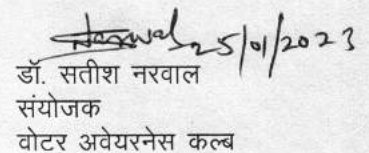 Narwal 25/01/2023
डॉ. सतीश नरवाल
संयोजक
वोटर अवेयरनेस कल्ब